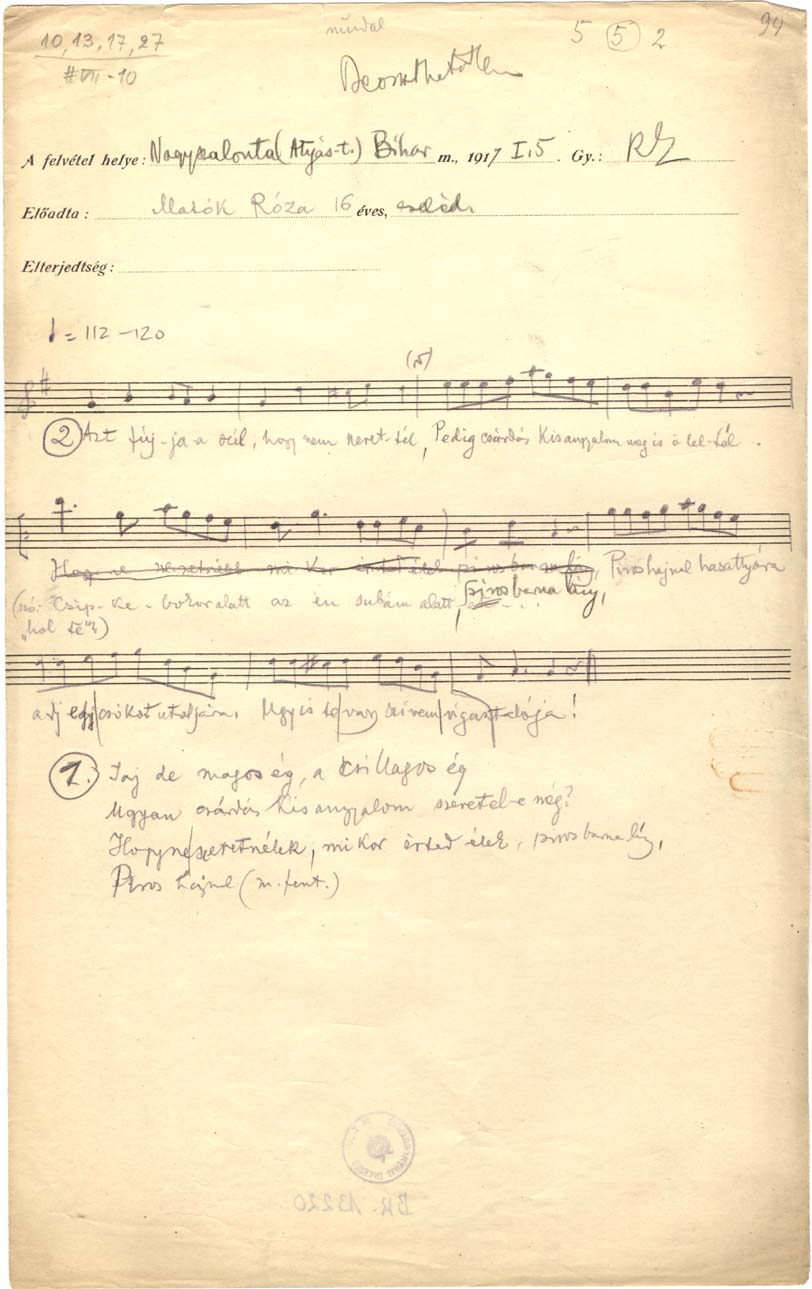 10, 13, 17, 27
# VII - 10
műdal
5 5 2
94
A felvétel helye: Nagyszalonta (Atyás-t.) Bihar m., 1917 I.5. Gy.:
Előadta: Matók Róza 16 éves, cseléd.
Elterjedtség:
= 112 - 120
2 Azt fúj-ja a szél, hogy nem szeret-tél, Pedig csárdás kisangyalom meg is ö lel-tél.
Hogy ne szeretnélek mi kor érted élek piros bar na lány, Piros hajnal hasattyára
Csip-ke-bokor alatt az én subám alatt, piros barna lány,
"hol te"?)
adj egy csókot utoljára. Ugyis te vagy szívem vigasztalója!
1. Jaj de magos ég, a csillagos ég
Ugyan csárdás kisangyalom szeretel-e még?
Hogyne szeretnélek, mikor érted élek, piros barna lány,
Piros hajnal (m. fent.)
BR. 13220